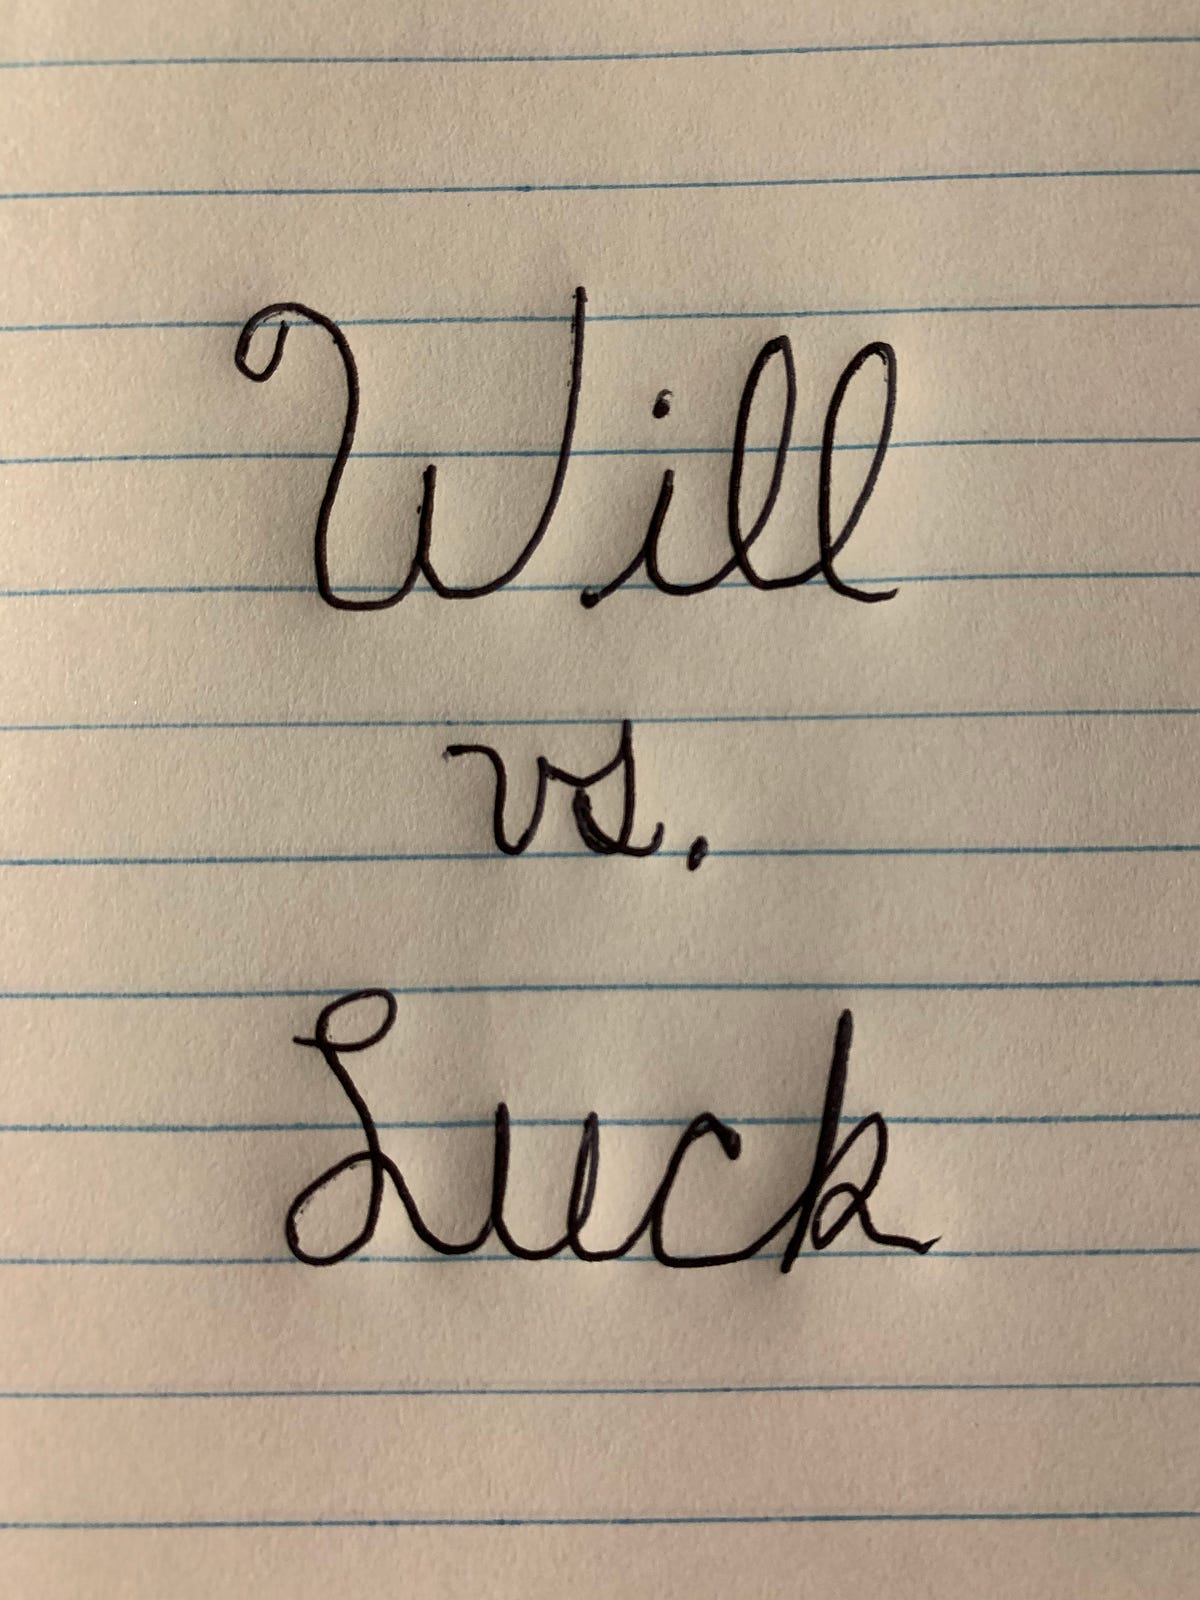 Will
vs.
Luck